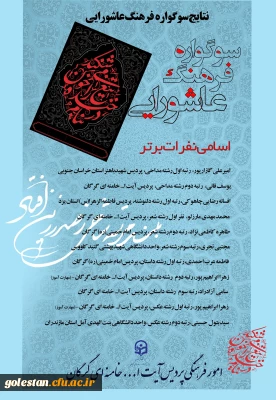 نتایج سوگواره فرهنگ عاشورایی
سوگواره
فرهنگ
عاشورایی
اسامی نفرات برتر
امیرعلی گلزارپور، رتبه اول رشته مداحی، پردیس شهیدباهنر استان خراسان جنوبی
یوسف قانی، رتبه دوم رشته مداحی، پردیس آیت ا... خامنه ای گرگان
افسانه رضایی چاهوکی، رتبه اول رشته دلنوشته، پردیس فاطمه الزهرا س استان یزد
محمدمهدی مازلو، نفر اول رشته شعر، پردیس آیت ا... خامنه ای گرگان
طاهره کاظمی نژاد، رتبه دوم رشته شعر، پردیس امام خمینی(ره) گرگان
مجتبی تجری، رتبه سوم رشته شعر، واحد دانشگاهی شهید بهشتی گنبد کاووس
فاطمه عرب احمدی، رتبه اول رشته داستان، پردیس امام خمینی(ره) گرگان
زهرا ابراهیم پور، رتبه دوم رشته داستان، پردیس آیت ا... خامنه ای گرگان
سامی آزادراد، رتبه سوم رشته داستان، پردیس آیت ا... خامنه ای گرگان
زهرا ابراهیم پور، رتبه اول رشته عکس، پردیس آیت ا... خامنه ای گرگان
سیدبتول حسینی، رتبه دوم رشته عکس، واحد دانشگاهی بنت الهدی آمل استان مازندران
امور فرهنگی پردیس آیت ا... خامنه ای گرگان
golestan.cfu.ac.ir